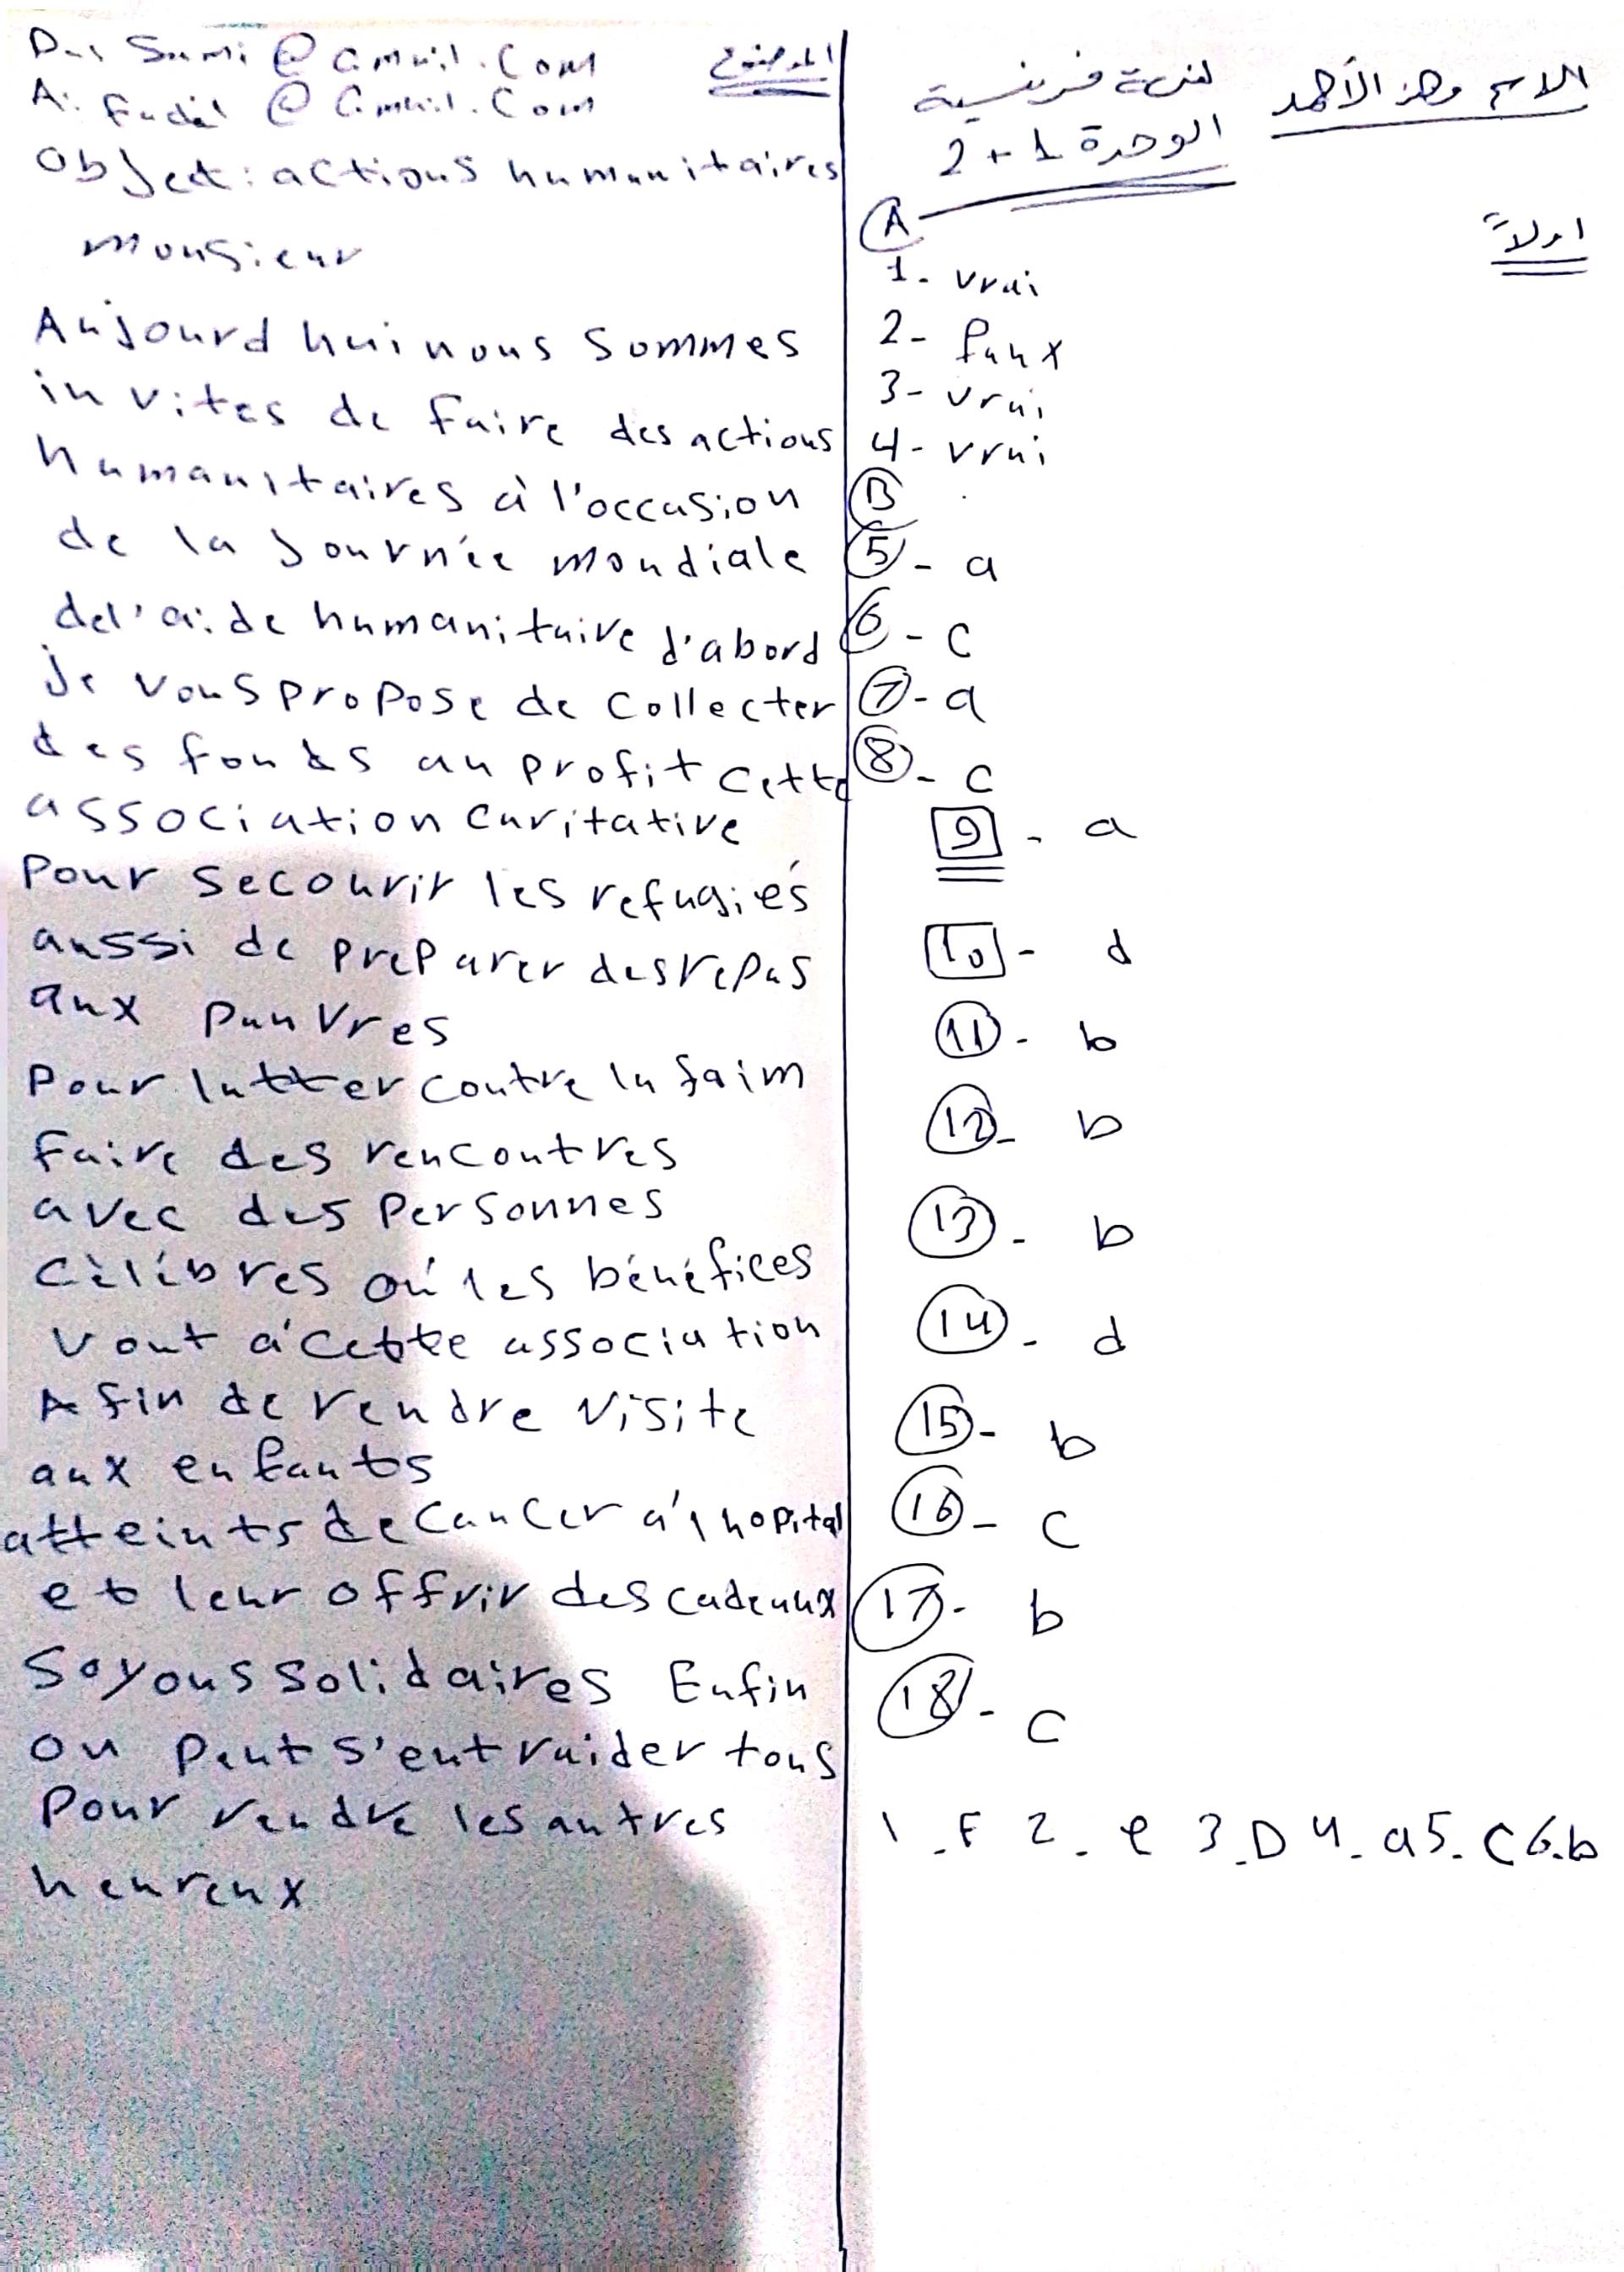 الاسم وهز الأحمد
لغة فرنسية
الوحدة 1 + 2
اولاً
A
1- vrai
2- faux
3- vrai
4- vrai
B
5 - a
6 - c
7 - a
8 - c
9 - a
10 - d
11 - b
12 - b
13 - b
14 - d
15 - b
16 - c
17 - b
18 - c
1-F 2-e 3-D 4-a 5-C 6-b
الموضوع
De: Sami @ Gmail.Com
A: Fadil @ Gmail.Com
Object: actions humanitaires
monsieur
Aujourd hui nous sommes
invites de faire des actions
humanitaires à l'occasion
de la Journée mondiale
de l'aide humanitaire d'abord
je vous propose de collecter
des fonds au profit cette
association caritative
Pour secourir les refugiés
aussi de preparer des repas
aux pauvres
Pour lutter contre la faim
faire des rencontres
avec des personnes
célèbres où les bénéfices
vont à cette association
Afin de rendre visite
aux enfants
atteints de cancer à l hopital
et leur offrir des cadeaux
Soyons solidaires Enfin
on peut s'entraider tous
Pour rendre les autres
heureux